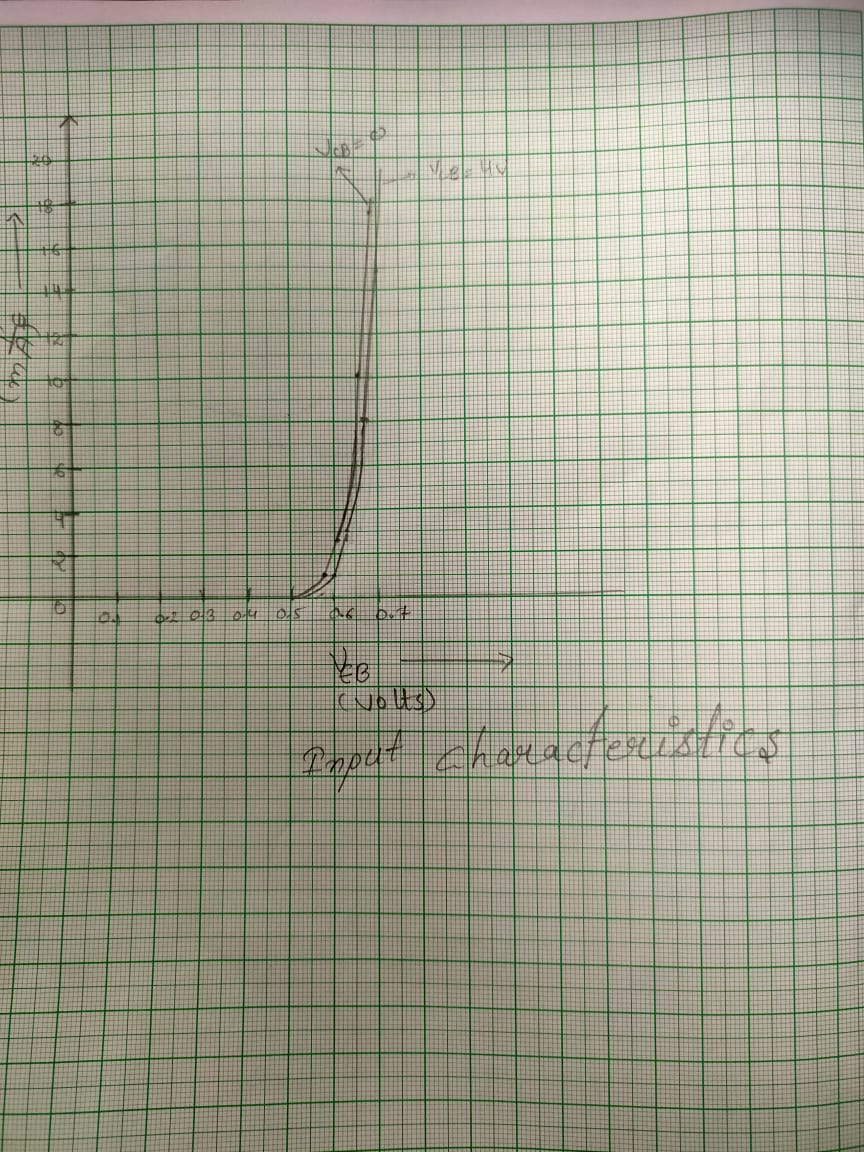 VCB = 0
VCB = 4V
20
18
16
14
12
10
8
6
4
2
0
0.1 0.2 0.3 0.4 0.5 0.6 0.7
VEB
(Volts)
Input characteristics